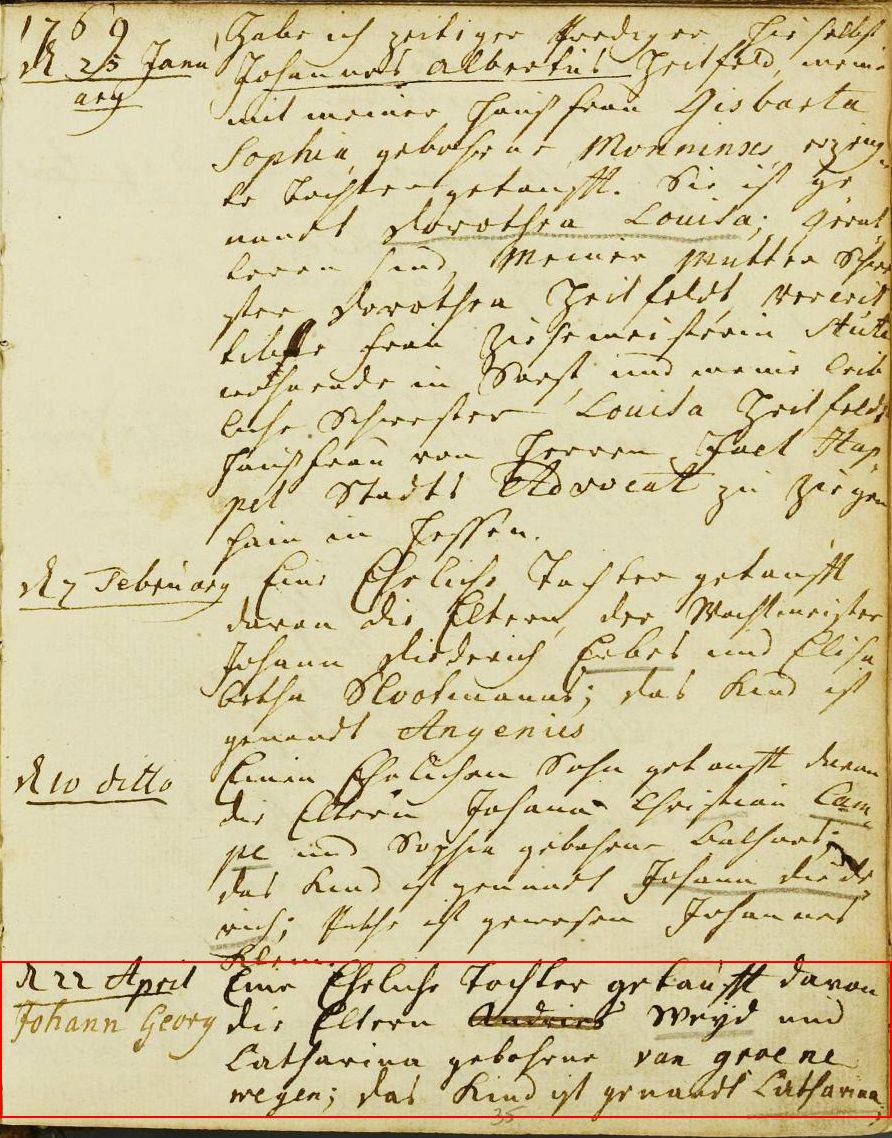 1769
d 25 Janu
ary
Habe ich zeitiger Prediger hieselbst
Johannes Albertus Zeitfeld, meine
mit meiner Hausfrau Gisbarta
Sophia, gebohrene Monninxs, erzeug
te Tochter getaufft. Sie ist ge
nandt Dorothea Louisa; Gevat
teren sind, Meiner Mutter Schwe
ster Dorothea Zeitfeldt, verwit
Frau Ziesemeisterin
in Soest, und meine leib
liche Schwester Louisa Zeitfeldt
Hausfrau von Herren Hap
pel Stadts Advocat zu Ziegen
hain in Hessen.
d 7 February
Eine Eheliche Tochter getaufft
davon die Eltern, der Wachtmeister
Johann Diederich Erbes und Elisa
betha Slootmanns; das Kind ist
genandt Angenius
d 10 ditto
Einen Ehelichen Sohn getaufft davon
die Eltern Johann Christian Cam
pe und Sophia gebohrne
das Kind ist genandt Johann Diede
rich; Pathe ist gewesen Johannes
Klem.
d 22 April
Johann Georg
Eine Eheliche Tochter getaufft davon
die Eltern Andries Weyd und
Catharina gebohrne van groene
wegen; das Kind ist genandt Catharina;
35